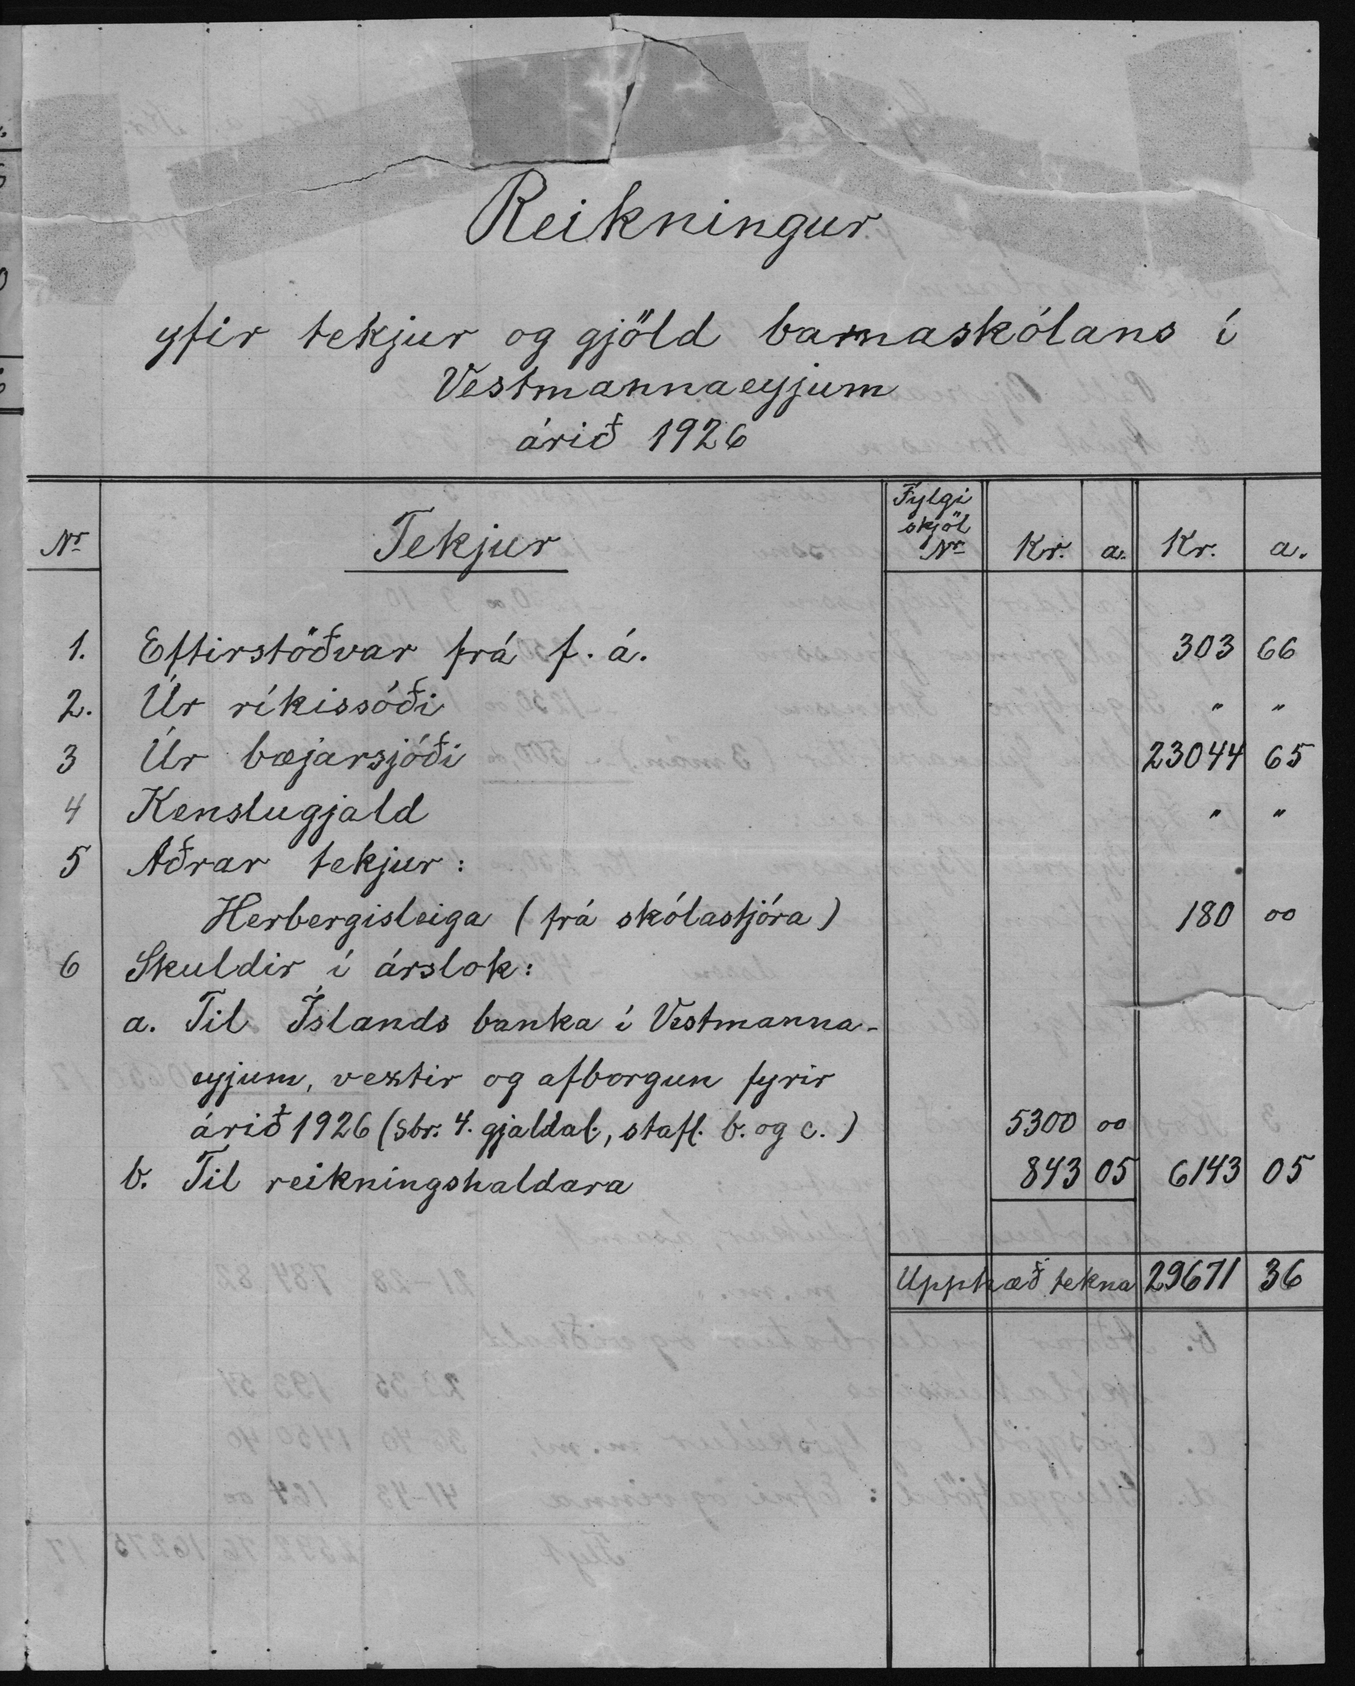 Reikningur
yfir tekjur og gjöld barnaskólans í
Vestmannaeyjum
árið 1926
Nr Tekjur Fylgi skjöl Nr Kr. a. Kr. a.
1. Eftirstöðvar frá f. á. 303 66
2. Úr ríkissóði " "
3 Úr bæjarsjóði 23044 65
4 Kenslugjald " "
5 Aðrar tekjur:
Herbergisleiga (frá skólastjóra) 180 00
6 Skuldir í árslok:
a. Til Íslands banka í Vestmanna-
eyjum, vextir og afborgun fyrir
árið 1926 (sbr. 4. gjaldal., stafl. b. og c.) 5300 00
b. Til reikningshaldara 843 05 6143 05
Upphæð tekna 29671 36